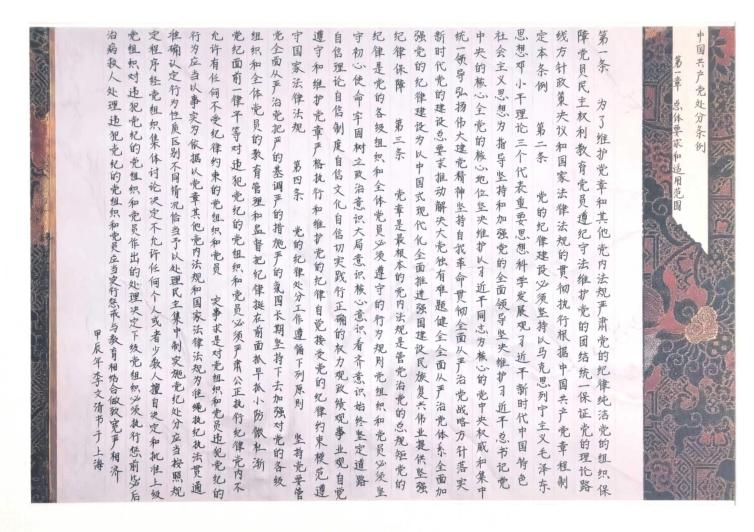 中国共产党处分条例
第一章 总体要求和适用范围
第一条 为了维护党章和其他党内法规严肃党的纪律纯洁党的组织保
障党员民主权利教育党员遵纪守法维护党的团结统一保证党的理论路
线方针政策决议和国家法律法规的贯彻执行根据中国共产党章程制
定本条例 第二条 党的纪律建设必须坚持以马克思列宁主义毛泽东
思想邓小平理论三个代表重要思想科学发展观习近平新时代中国特色
社会主义思想为指导坚持和加强党的全面领导坚决维护习近平总书记党
中央的核心全党的核心地位坚决维护以习近平同志为核心的党中央权威和集中
统一领导弘扬伟大建党精神坚持自我革命贯彻全面从严治党战略方针落实
新时代党的建设总要求推动解决大党独有难题健全全面从严治党体系全面加
强党的纪律建设为以中国式现代化全面推进强国建设民族复兴伟业提供坚强
纪律保障 第三条 党章是最根本的党内法规是管党治党的总规矩党的
纪律是党的各级组织和全体党员必须遵守的行为规则党组织和党员必须坚
守初心使命牢固树立政治意识大局意识核心意识看齐意识始终坚定道路
自信理论自信制度自信文化自信切实践行正确的权力观政绩观事业观自觉
遵守和维护党章严格执行和维护党的纪律自觉接受党的纪律约束模范遵
守国家法律法规 第四条 党的纪律处分工作遵循下列原则 坚持党要管
党全面从严治党把严的基调严的措施严的氛围长期坚持下去加强对党的各级
组织和全体党员的教育管理和监督把纪律挺在前面抓早抓小防微杜渐
党纪面前一律平等对违犯党纪的党组织和党员必须严肃公正执行纪律党内不
允许有任何不受纪律约束的党组织和党员 实事求是对党组织和党员违犯党纪的
行为应当以事实为依据以党章其他党内法规和国家法律法规为准绳执纪执法贯通
准确认定行为性质区别不同情况恰当予以处理民主集中制实施党纪处分应当按照规
定程序经党组织集体讨论决定不允许任何个人或者少数人擅自决定和批准上级
党组织对违犯党纪的党组织和党员作出的处理决定下级党组织必须执行惩前毖后
治病救人处理违犯党纪的党组织和党员应当实行惩戒与教育相结合做到宽严相济
甲辰年李文清书于上海